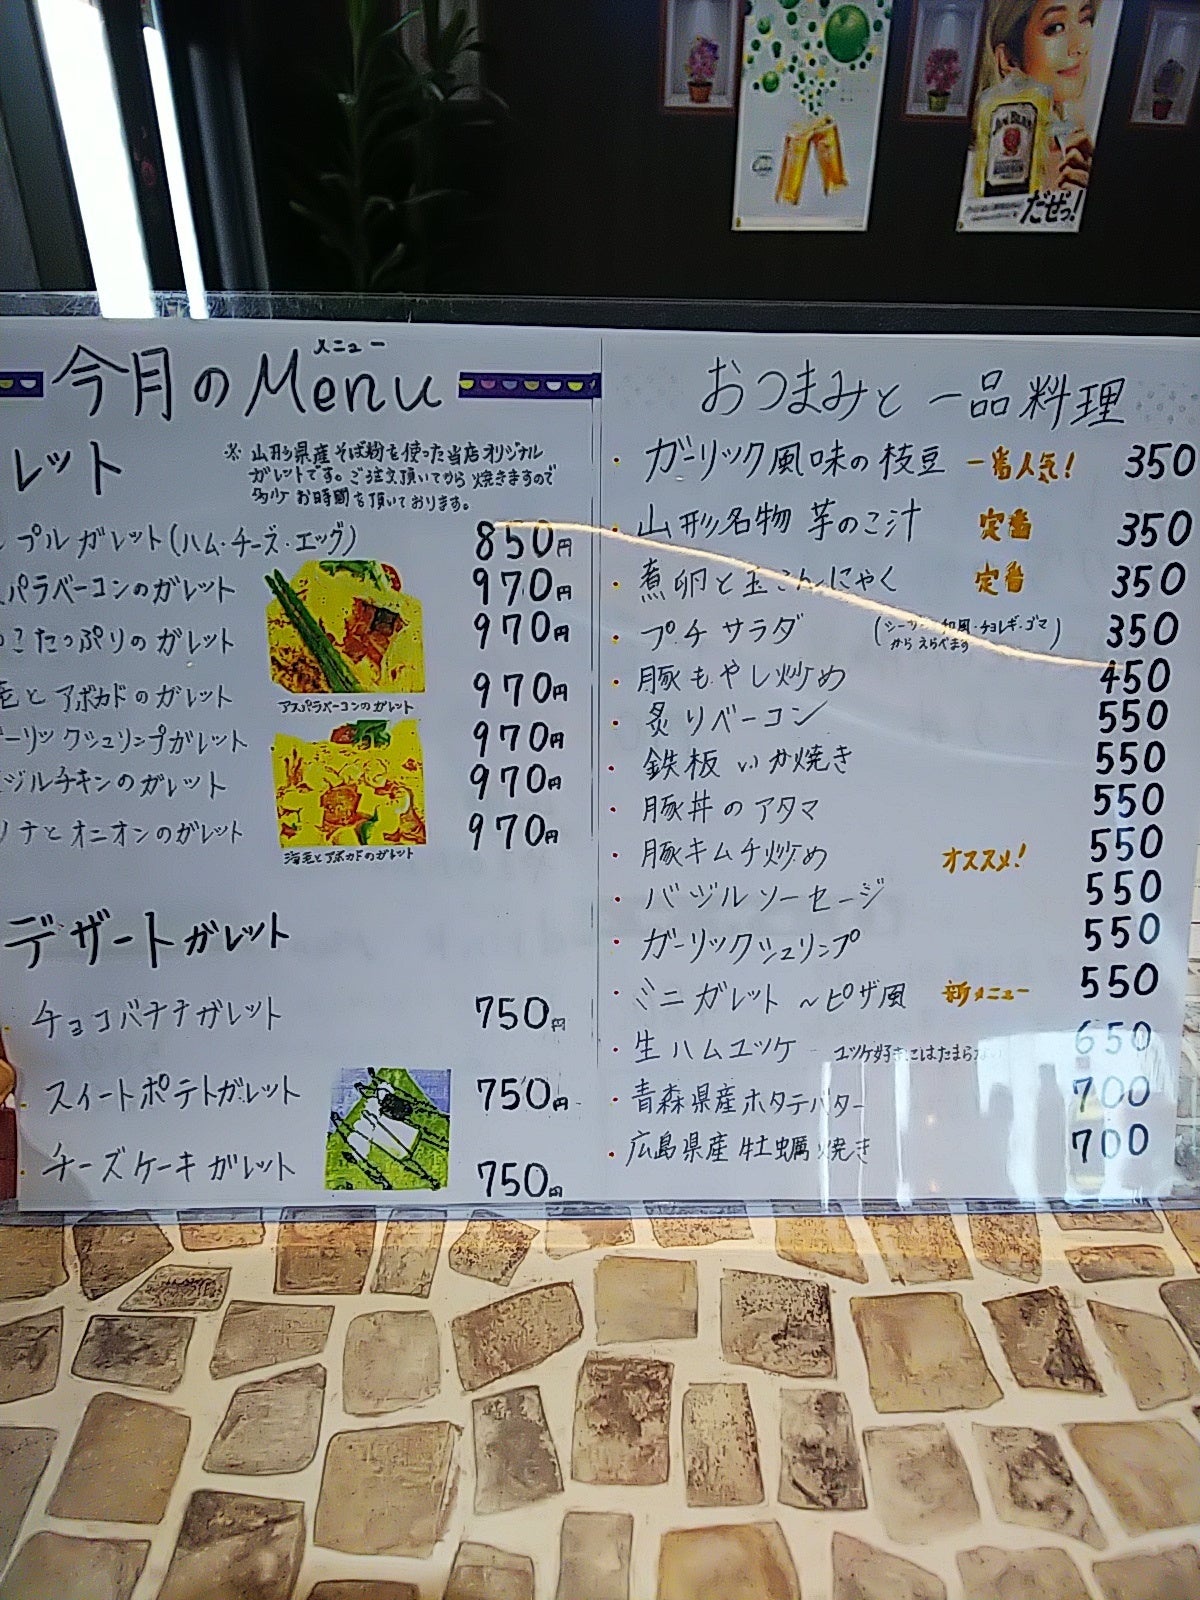 JIM BEAM
だぜっ!
今月のMenu
メニュー
レット
※ 山形県産そば粉を使った当店オリジナル
ガレットです。ご注文頂いてから焼きますので
多少お時間を頂いております。
プルガレット(ハム・チーズ・エッグ) 850円
パラベーコンのガレット 970円
こたっぷりのガレット 970円
老とアボカドのガレット 970円
ーリックシュリンプガレット 970円
ジルチキンのガレット 970円
ナとオニオンのガレット 970円
アスパラベーコンのガレット
海老とアボカドのガレット
デザートガレット
チョコバナナガレット 750円
スイートポテトガレット 750円
チーズケーキガレット 750円
おつまみと一品料理
・ガーリック風味の枝豆 一番人気! 350
・山形名物 芋のこ汁 定番 350
・煮卵と玉こんにゃく 定番 350
・プチサラダ (シーザー・和風・チョレギ・ゴマ からえらべます) 350
・豚もやし炒め 450
・炙りベーコン 550
・鉄板いか焼き 550
・豚丼のアタマ 550
・豚キムチ炒め オススメ! 550
・バジルソーセージ 550
・ガーリックシュリンプ 550
・ミニガレット ~ピザ風 新メニュー 550
・生ハムユッケ ユッケ好きにはたまらない 650
・青森県産ホタテバター 700
・広島県産牡蠣焼き 700